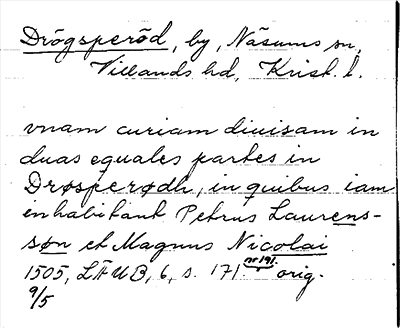 Drögsperöd, by, Näsums sn,
Villands hd, Krist. l.
vnam curiam diuisam in
duas equales partes in
Drøsperødh, in quibus iam
inhabitant Petrus Laurens-
søn et Magnus Nicolai
1505, LÄUB, 6, s. 171. nr 191. orig.
9/5